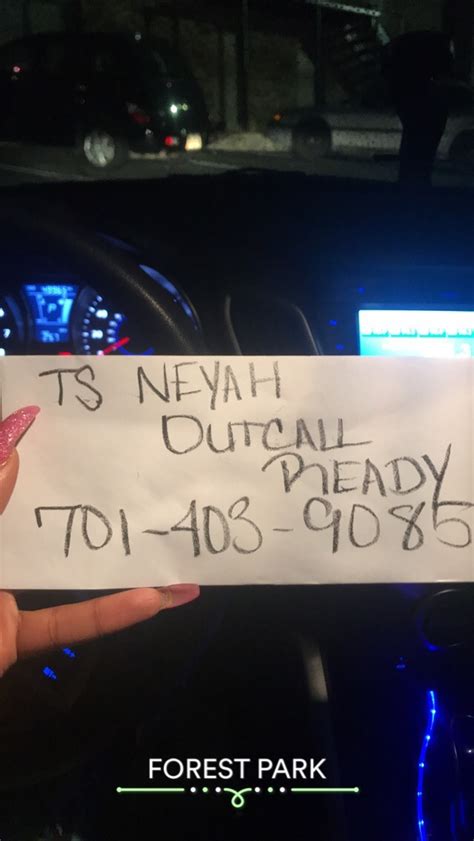 TS NEYAH
OUTCALL
READY
701-403-9085
FOREST PARK